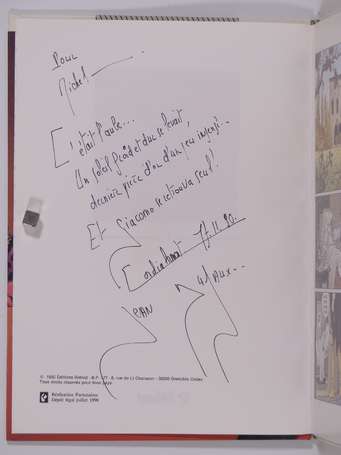 Pour
Michel
C'était l'aube...
Un soleil froid et dur se levait,
dernière pièce d'or d'un jeu insensé...
Et Giacomo se retrouva seul!
Cordialement 17.11.90.
© 1990 Editions Glénat - B.P. 177 - 6, rue de Lt Chanaron - 38000 Grenoble Cedex
Tous droits réservés pour tous pays.
Réalisation Partenaires
Dépôt légal juillet 1990